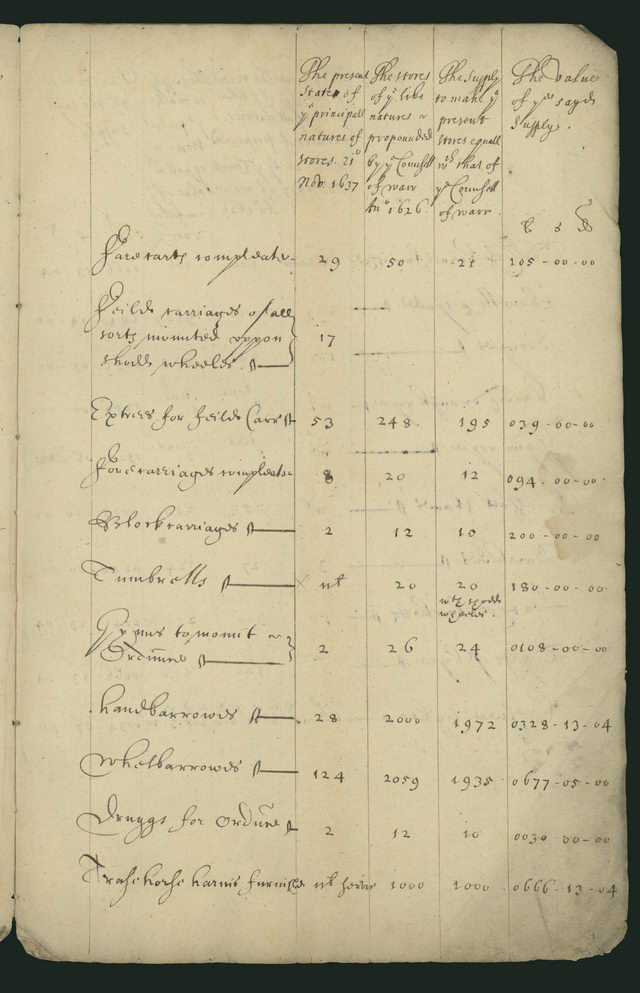 The present
State of
yᵉ principall
natures of
stores. 21°
Nov: 1637
The stores
of yᵉ like
natures
propounded
by yᵉ Counsell
of warr
Anº 1626.
The Supply
to make yᵉ
present
stores equall
wᵗʰ that of
yᵉ Counsell
of warr.
The Value
of yᵉ sayd
Supply.
£ s d
Farecarts compleate 29 50 21 105-00-00
Feild carriages of all
sorts mounted uppon 17
shodd wheeles.
Extrees for feild Carr 53 248. 195 039-00-00
Forecarriages compleate 8 20 12 094-00-00
Blockcarriages 2 12 10 200-00-00
Tumbrells nˡ 20 20 180-00-00
wᵗʰ shodd
wheeles.
Gynns to mount
Ordnnce 2 26 24 0108-00-00
Handbarrowes 28 2000 1972 0328-13-04
Whelbarrowes 124 2059 1935 0677-05-00
Druggs for Ordnce 2 12 10 0030 00-00
Trasehorse harnis furnished nˡ 1000 1000 0666-13-04